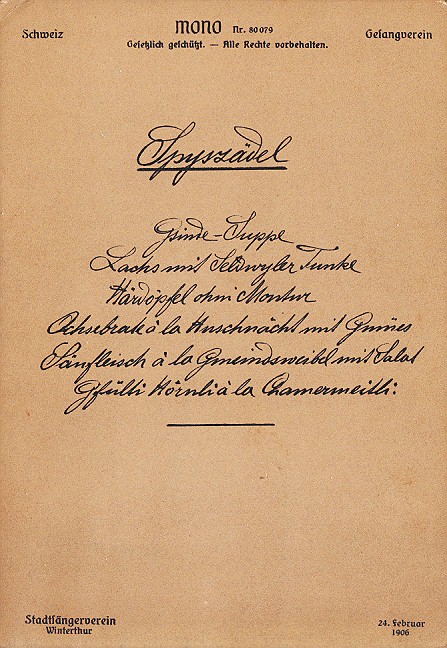 Schweiz
MONO Nr. 80079
Gesangverein
Gesetzlich geschützt. — Alle Rechte vorbehalten.
Spyszädel
Gsinde-Suppe
Lachs mit Seldwyler Tunke
Härdöpfel ohni Montur
Ochsebrate à la Huschnächt mit Grünes
Säufleisch à la Gmeindsweibel mit Salat
Gfüllti Hörnli à la Chamermeitli.
Stadtsängerverein
Winterthur
24. Februar
1906